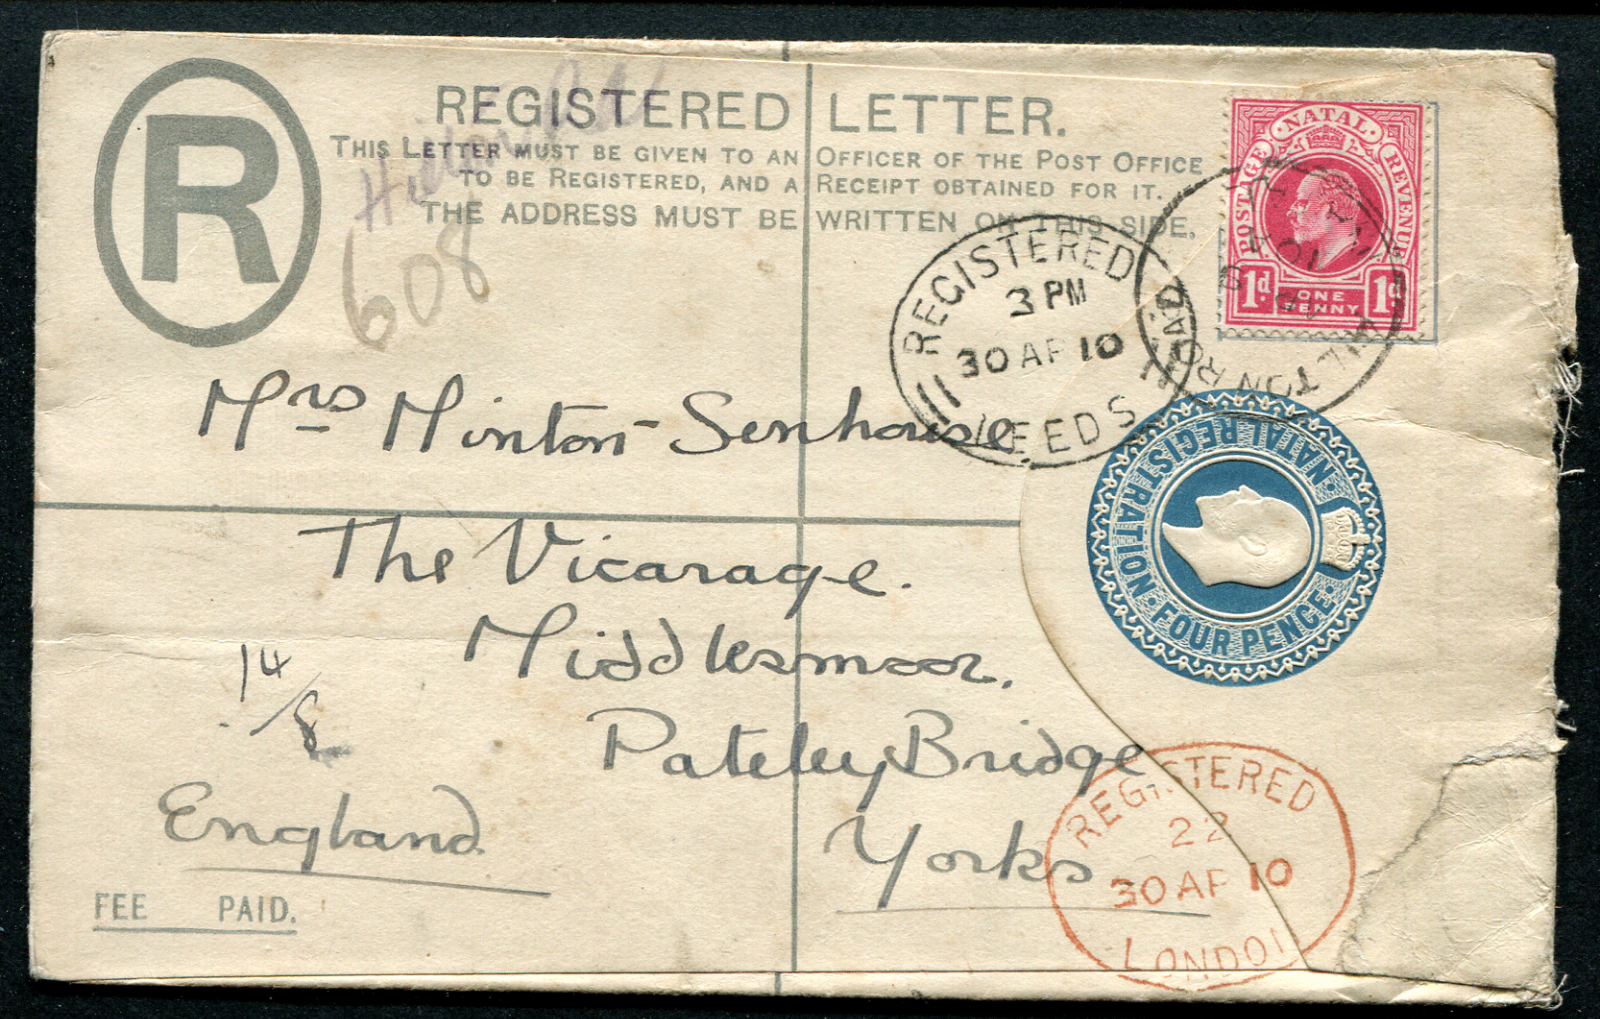 R
REGISTERED LETTER.
THIS LETTER MUST BE GIVEN TO AN OFFICER OF THE POST OFFICE
TO BE REGISTERED, AND A RECEIPT OBTAINED FOR IT.
THE ADDRESS MUST BE WRITTEN ON THIS SIDE.
608
NATAL
POSTAGE REVENUE
1d. 1d.
ONE PENNY
HILTON ROAD
REGISTERED
3 PM
30 AP 10
LEEDS
Mrs Minton-Senhouse.
NATAL REGISTRATION FOUR PENCE
The Vicarage.
Middlesmoor.
14/8
Pateley Bridge
England
Yorks
REGISTERED
22
30 AP 10
LONDON
FEE PAID.